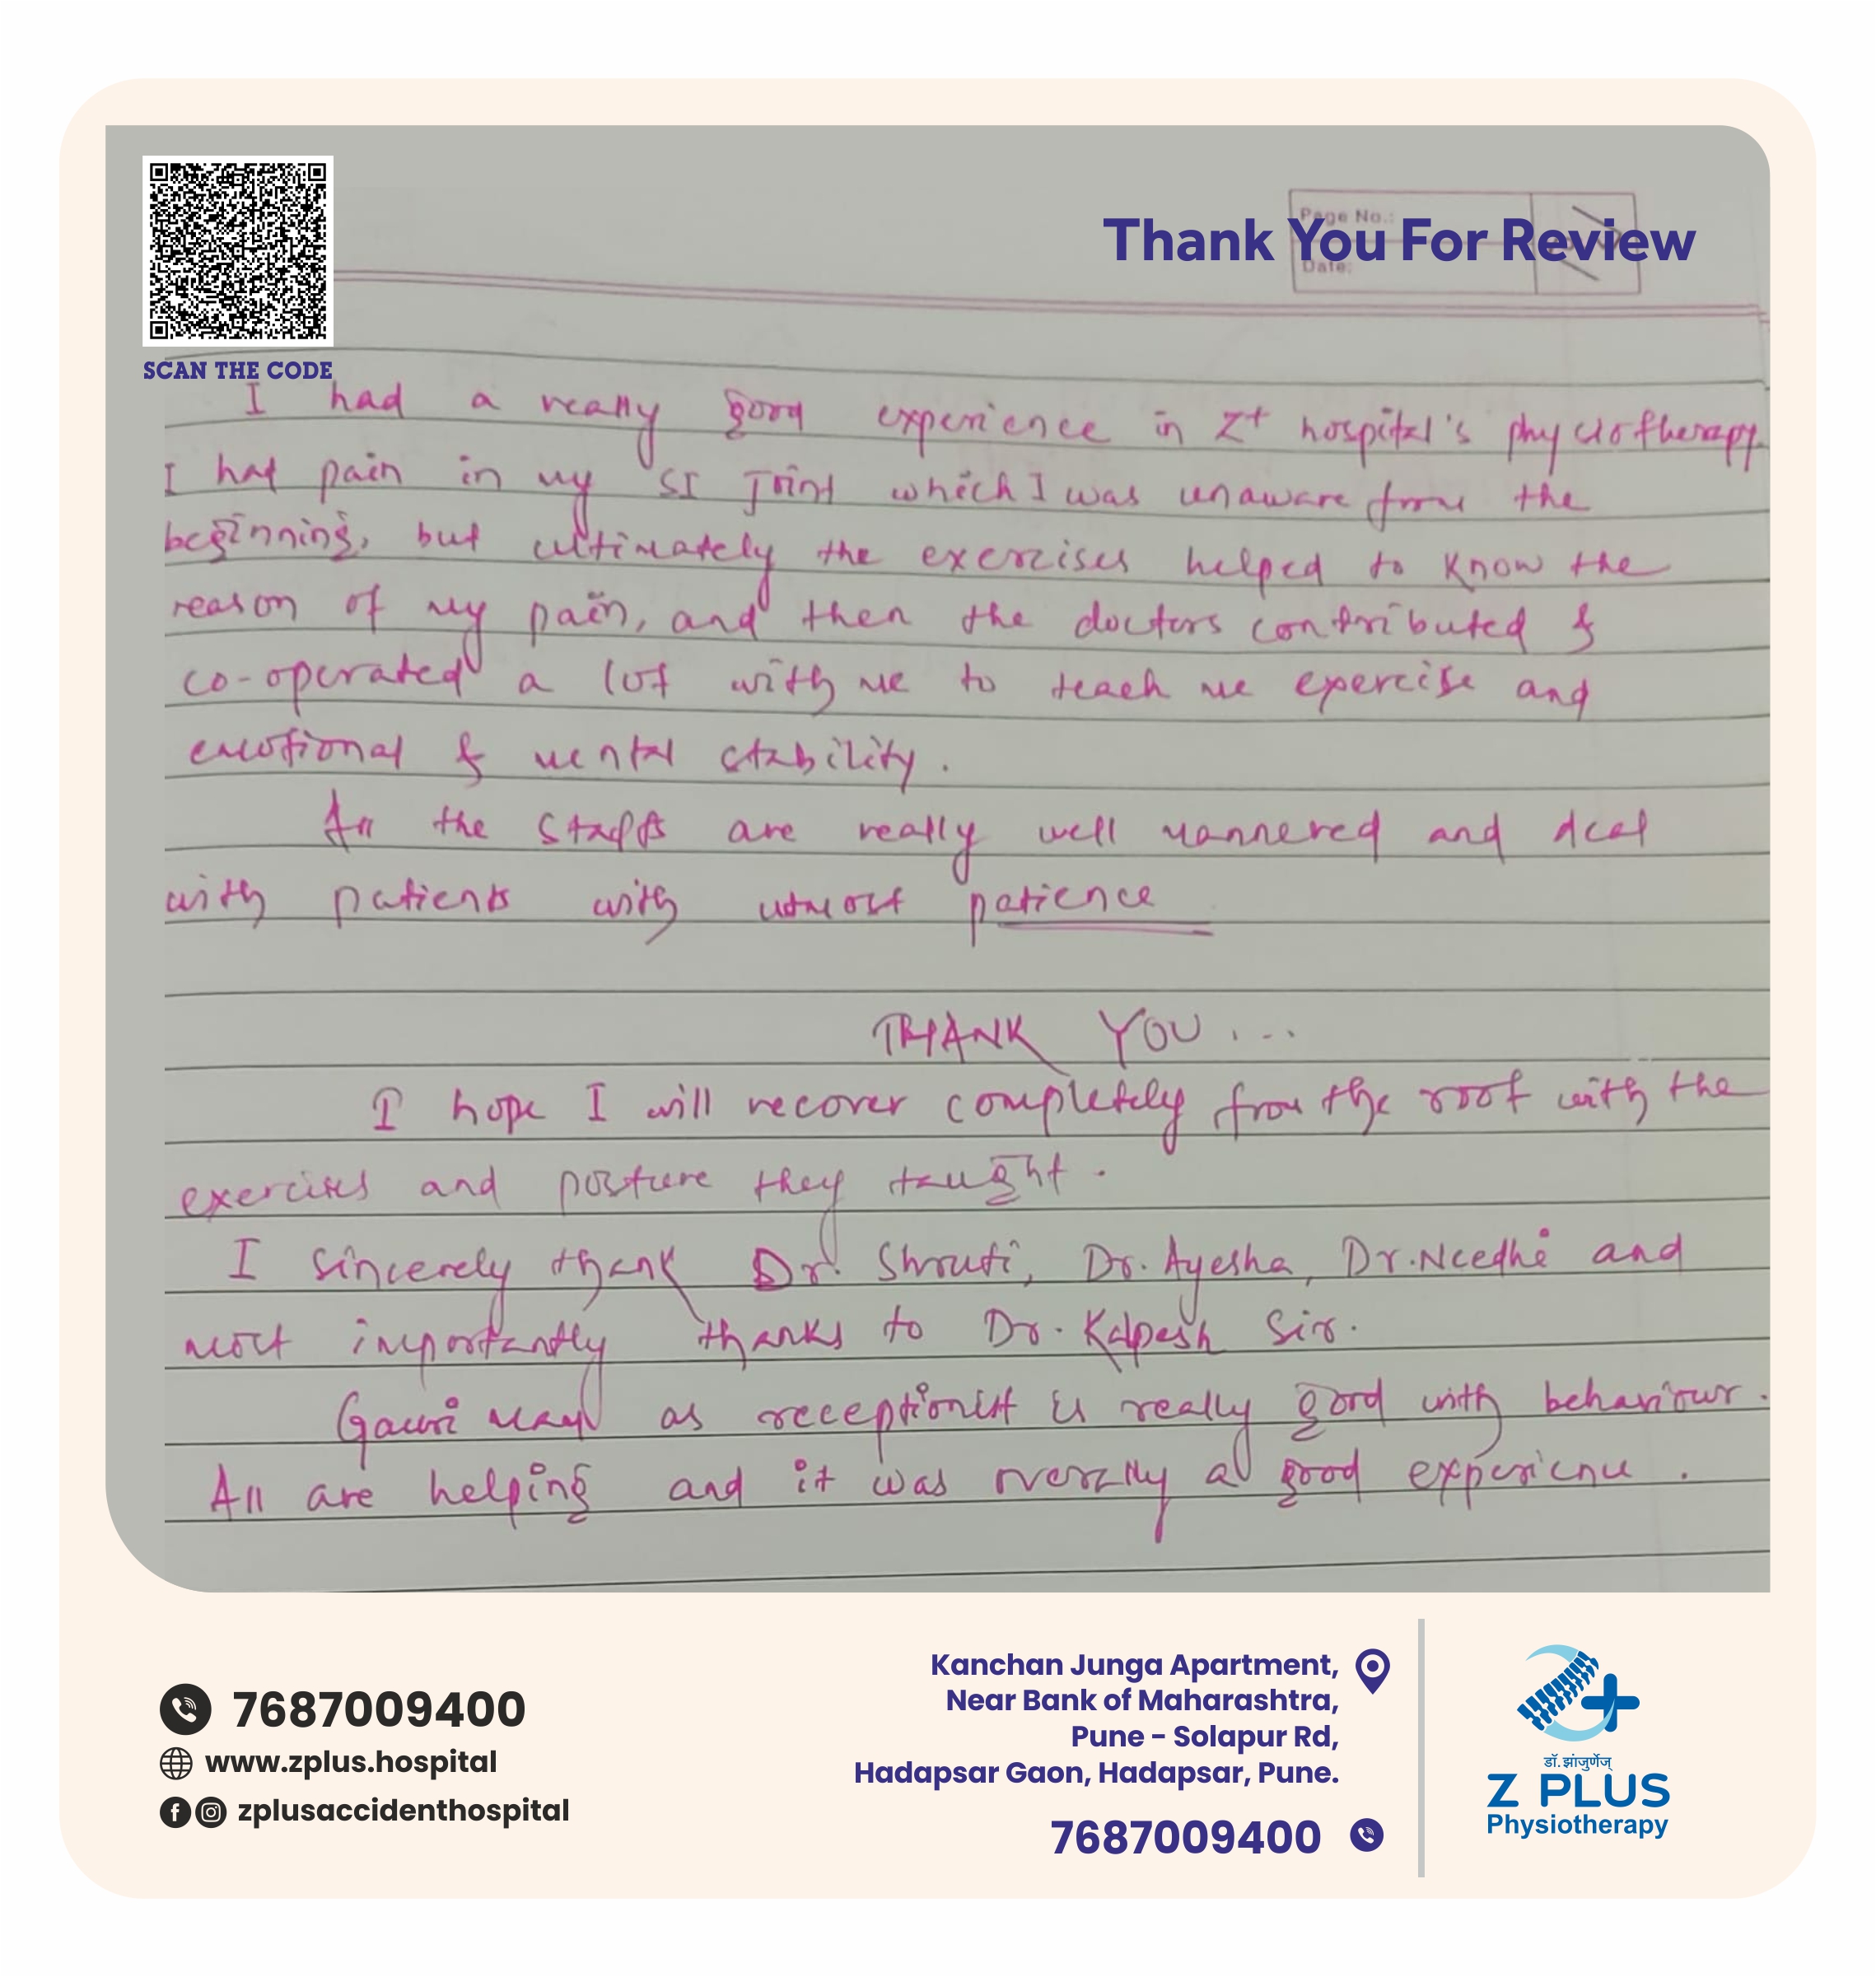 Thank You For Review
Page No.:
Date:
SCAN THE CODE
I had a really good experience in Z+ hospital's physiotherapy.
I had pain in my SI Joint which I was unaware from the
beginning, but ultimately the exercises helped to know the
reason of my pain, and then the doctors contributed &
co-operated a lot with me to teach me exercise and
emotional & mental stability.
All the staffs are really well mannered and deal
with patients with utmost patience
THANK YOU...
I hope I will recover completely from the root with the
exercises and posture they taught.
I sincerely thank Dr. Shruti, Dr. Ayesha, Dr. Needhi and
most importantly thanks to Dr. Kalpesh Sir.
Gauri mam as receptionist is really good with behaviour.
All are helping and it was overally a good experience.
7687009400
www.zplus.hospital
zplusaccidenthospital
Kanchan Junga Apartment,
Near Bank of Maharashtra,
Pune - Solapur Rd,
Hadapsar Gaon, Hadapsar, Pune.
7687009400
डॉ. झांजुर्णेज्
Z PLUS
Physiotherapy